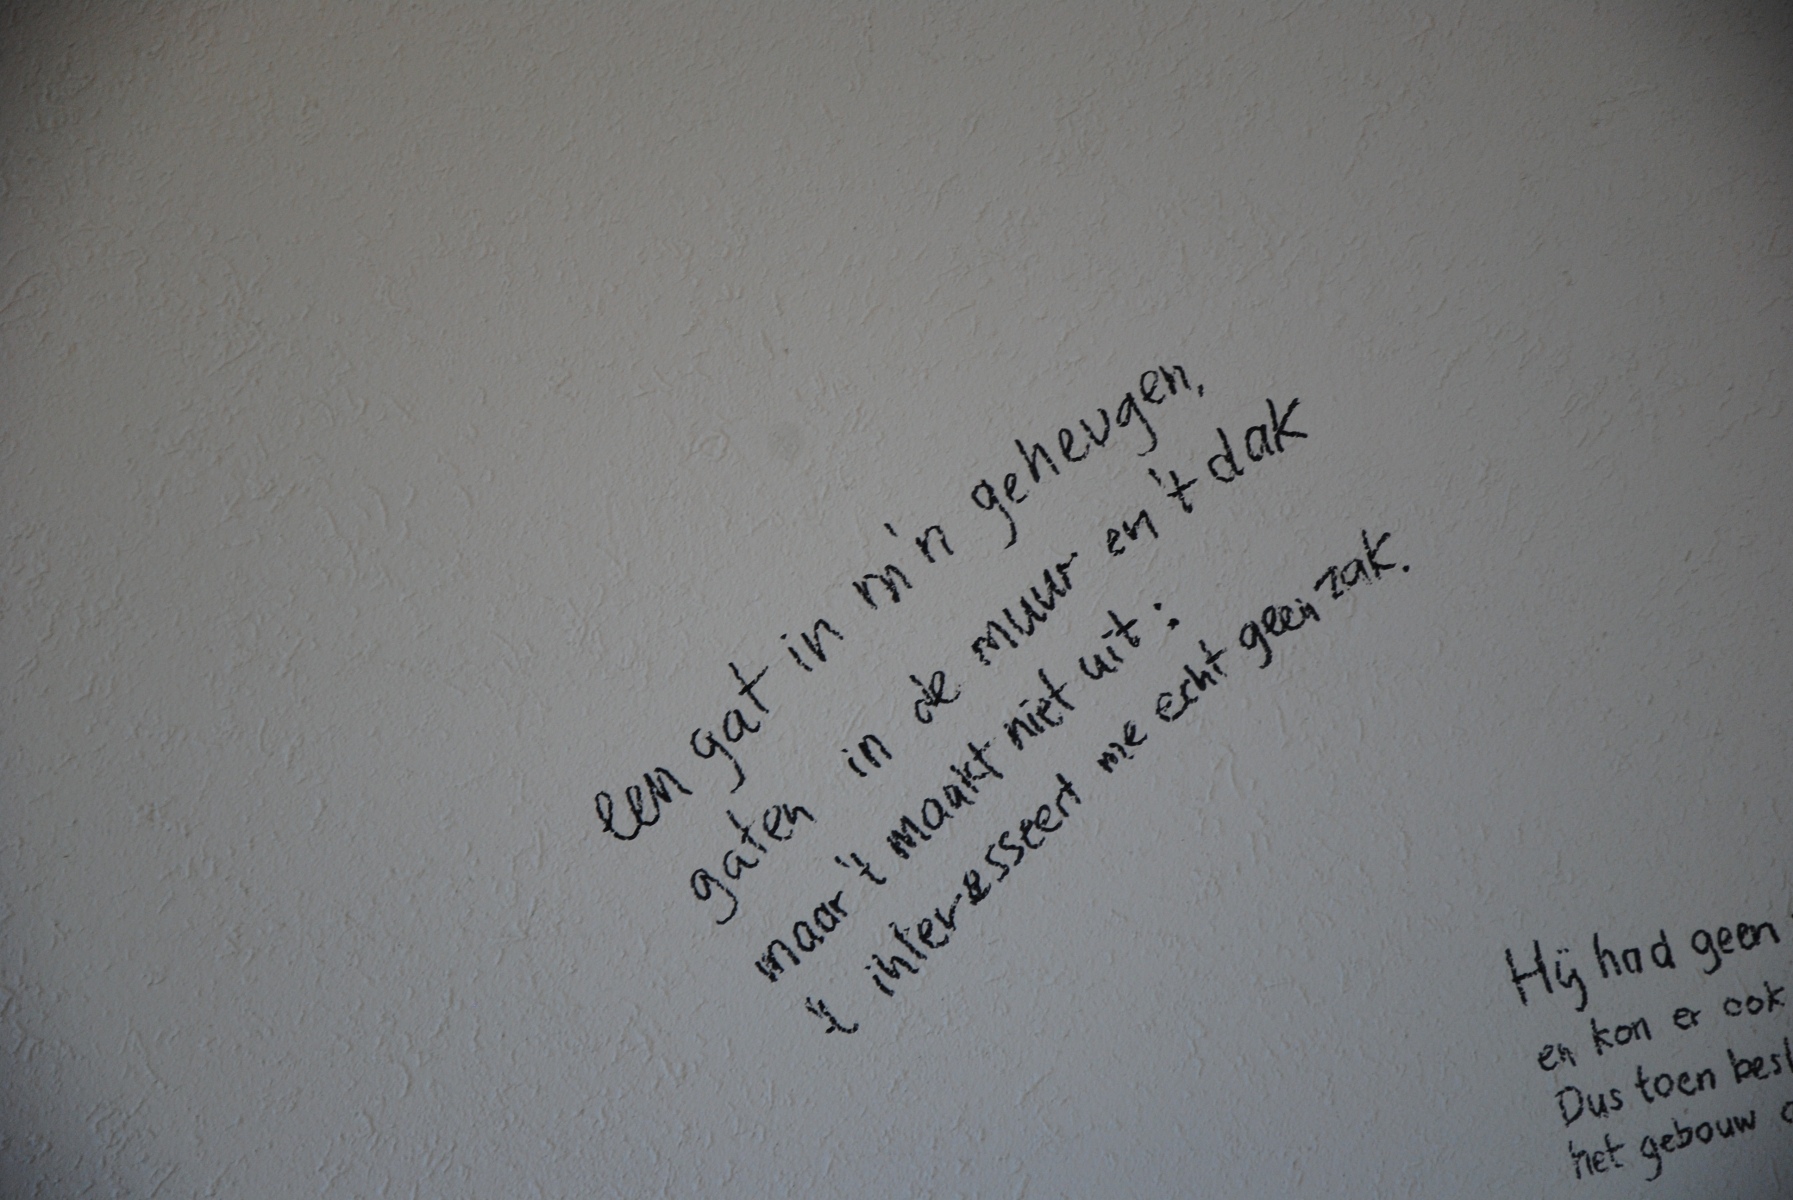 een gat in m'n geheugen,
gaten in de muur en 't dak
maar 't maakt niet uit:
't interesseert me echt geen zak.
Hij had geen
en kon er ook
Dus toen besl
het gebouw